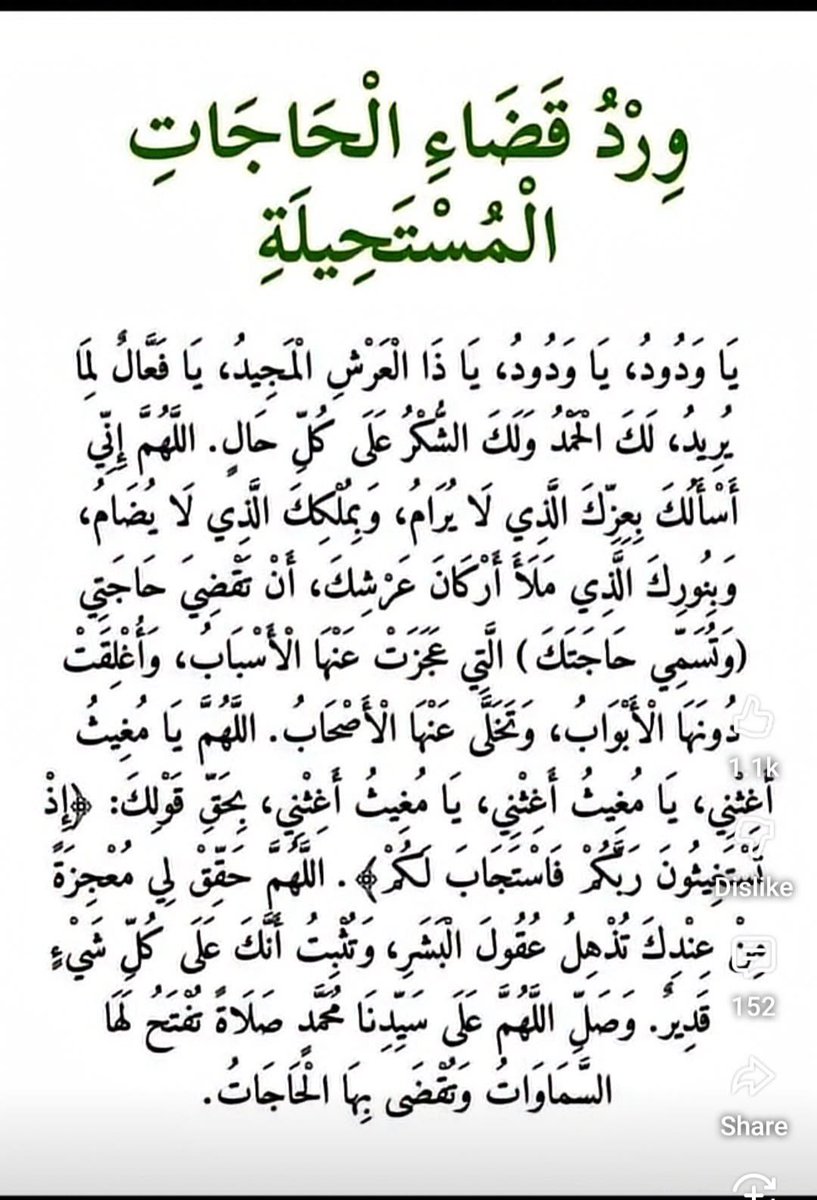 وِرْدُ قَضَاءِ الْحَاجَاتِ
الْمُسْتَحِيلَةِ
يَا وَدُودُ، يَا وَدُودُ، يَا ذَا الْعَرْشِ الْمَجِيدُ، يَا فَعَّالٌ لِمَا
يُرِيدُ، لَكَ الْحَمْدُ وَلَكَ الشُّكْرُ عَلَى كُلِّ حَالٍ. اللَّهُمَّ إِنِّي
أَسْأَلُكَ بِعِزِّكَ الَّذِي لَا يُرَامُ، وَبِمُلْكِكَ الَّذِي لَا يُضَامُ،
وَبِنُورِكَ الَّذِي مَلَأَ أَرْكَانَ عَرْشِكَ، أَنْ تَقْضِيَ حَاجَتِي
(وَتُسَمِّي حَاجَتَكَ) الَّتِي عَجَزَتْ عَنْهَا الْأَسْبَابُ، وَأُغْلِقَتْ
دُونَهَا الْأَبْوَابُ، وَتَخَلَّى عَنْهَا الْأَصْحَابُ. اللَّهُمَّ يَا مُغِيثُ
أَغِثْنِي، يَا مُغِيثُ أَغِثْنِي، يَا مُغِيثُ أَغِثْنِي، بِحَقِّ قَوْلِكَ: ﴿إِذْ
تَسْتَغِيثُونَ رَبَّكُمْ فَاسْتَجَابَ لَكُمْ﴾. اللَّهُمَّ حَقِّقْ لِي مُعْجِزَةً
مِنْ عِنْدِكَ تُذْهِلُ عُقُولَ الْبَشَرِ، وَتُثْبِتُ أَنَّكَ عَلَى كُلِّ شَيْءٍ
قَدِيرٌ. وَصَلِّ اللَّهُمَّ عَلَى سَيِّدِنَا مُحَمَّدٍ صَلَاةً تُفْتَحُ لَهَا
السَّمَاوَاتُ وَتُقْضَى بِهَا الْحَاجَاتُ.
1.1k
Dislike
152
Share